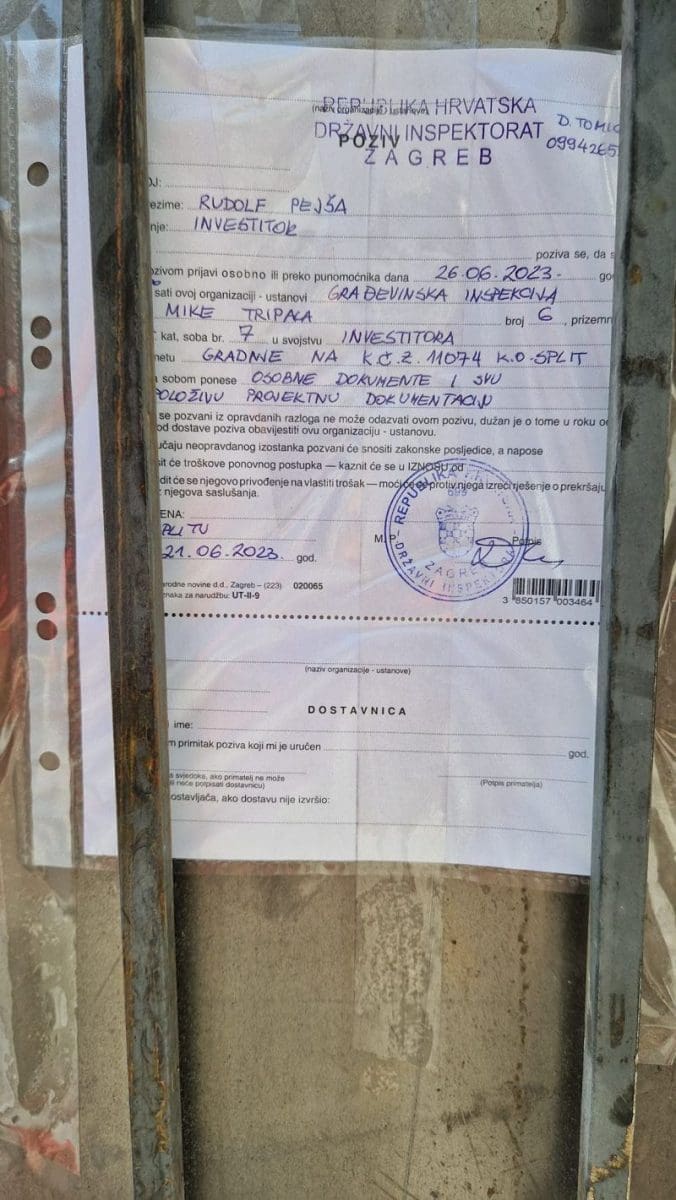 REPUBLIKA HRVATSKA
(naziv organizacije - ustanove)
DRŽAVNI INSPEKTORAT
D. TOMIĆ
POZIV
0994265
ZAGREB
OJ:
ezime: RUDOLF PEJŠA
nje: INVESTITOR
poziva se, da s
ozivom prijavi osobno ili preko punomoćnika dana 26.06.2023. go
sati ovoj organizaciji - ustanovi GRAĐEVINSKA INSPEKCIJA
MIKE TRIPALA broj 6, prizemn
kat, soba br. 7 u svojstvu INVESTITORA
metu GRADNJE NA K.Č.Z. 11074 K.O. SPLIT
a sobom ponese OSOBNE DOKUMENTE I SVU
POLOŽIVU PROJEKTNU DOKUMENTACIJU
se pozvani iz opravdanih razloga ne može odazvati ovom pozivu, dužan je o tome u roku od
od dostave poziva obavijestiti ovu organizaciju - ustanovu.
učaju neopravdanog izostanka pozvani će snositi zakonske posljedice, a napose
sit će troškove ponovnog postupka — kaznit će se u IZNOSU od
dit će se njegovo privođenje na vlastiti trošak — moći će se protiv njega izreći rješenje o prekršaju
z njegova saslušanja.
ENA:
PLITU
M. P.
Potpis
21.06.2023. god.
REPUBLIKA HRVATSKA
DRŽAVNI INSPEKTORAT
ZAGREB
arodne novine d.d., Zagreb – (223) 020065
znaka za narudžbu: UT-II-9
3 850157 003464
(naziv organizacije - ustanove)
DOSTAVNICA
ime:
m primitak poziva koji mi je uručen
god.
s svjedoka, ako primatelj ne može
ili neće potpisati dostavnicu)
(Potpis primatelja)
ostavljača, ako dostavu nije izvršio: